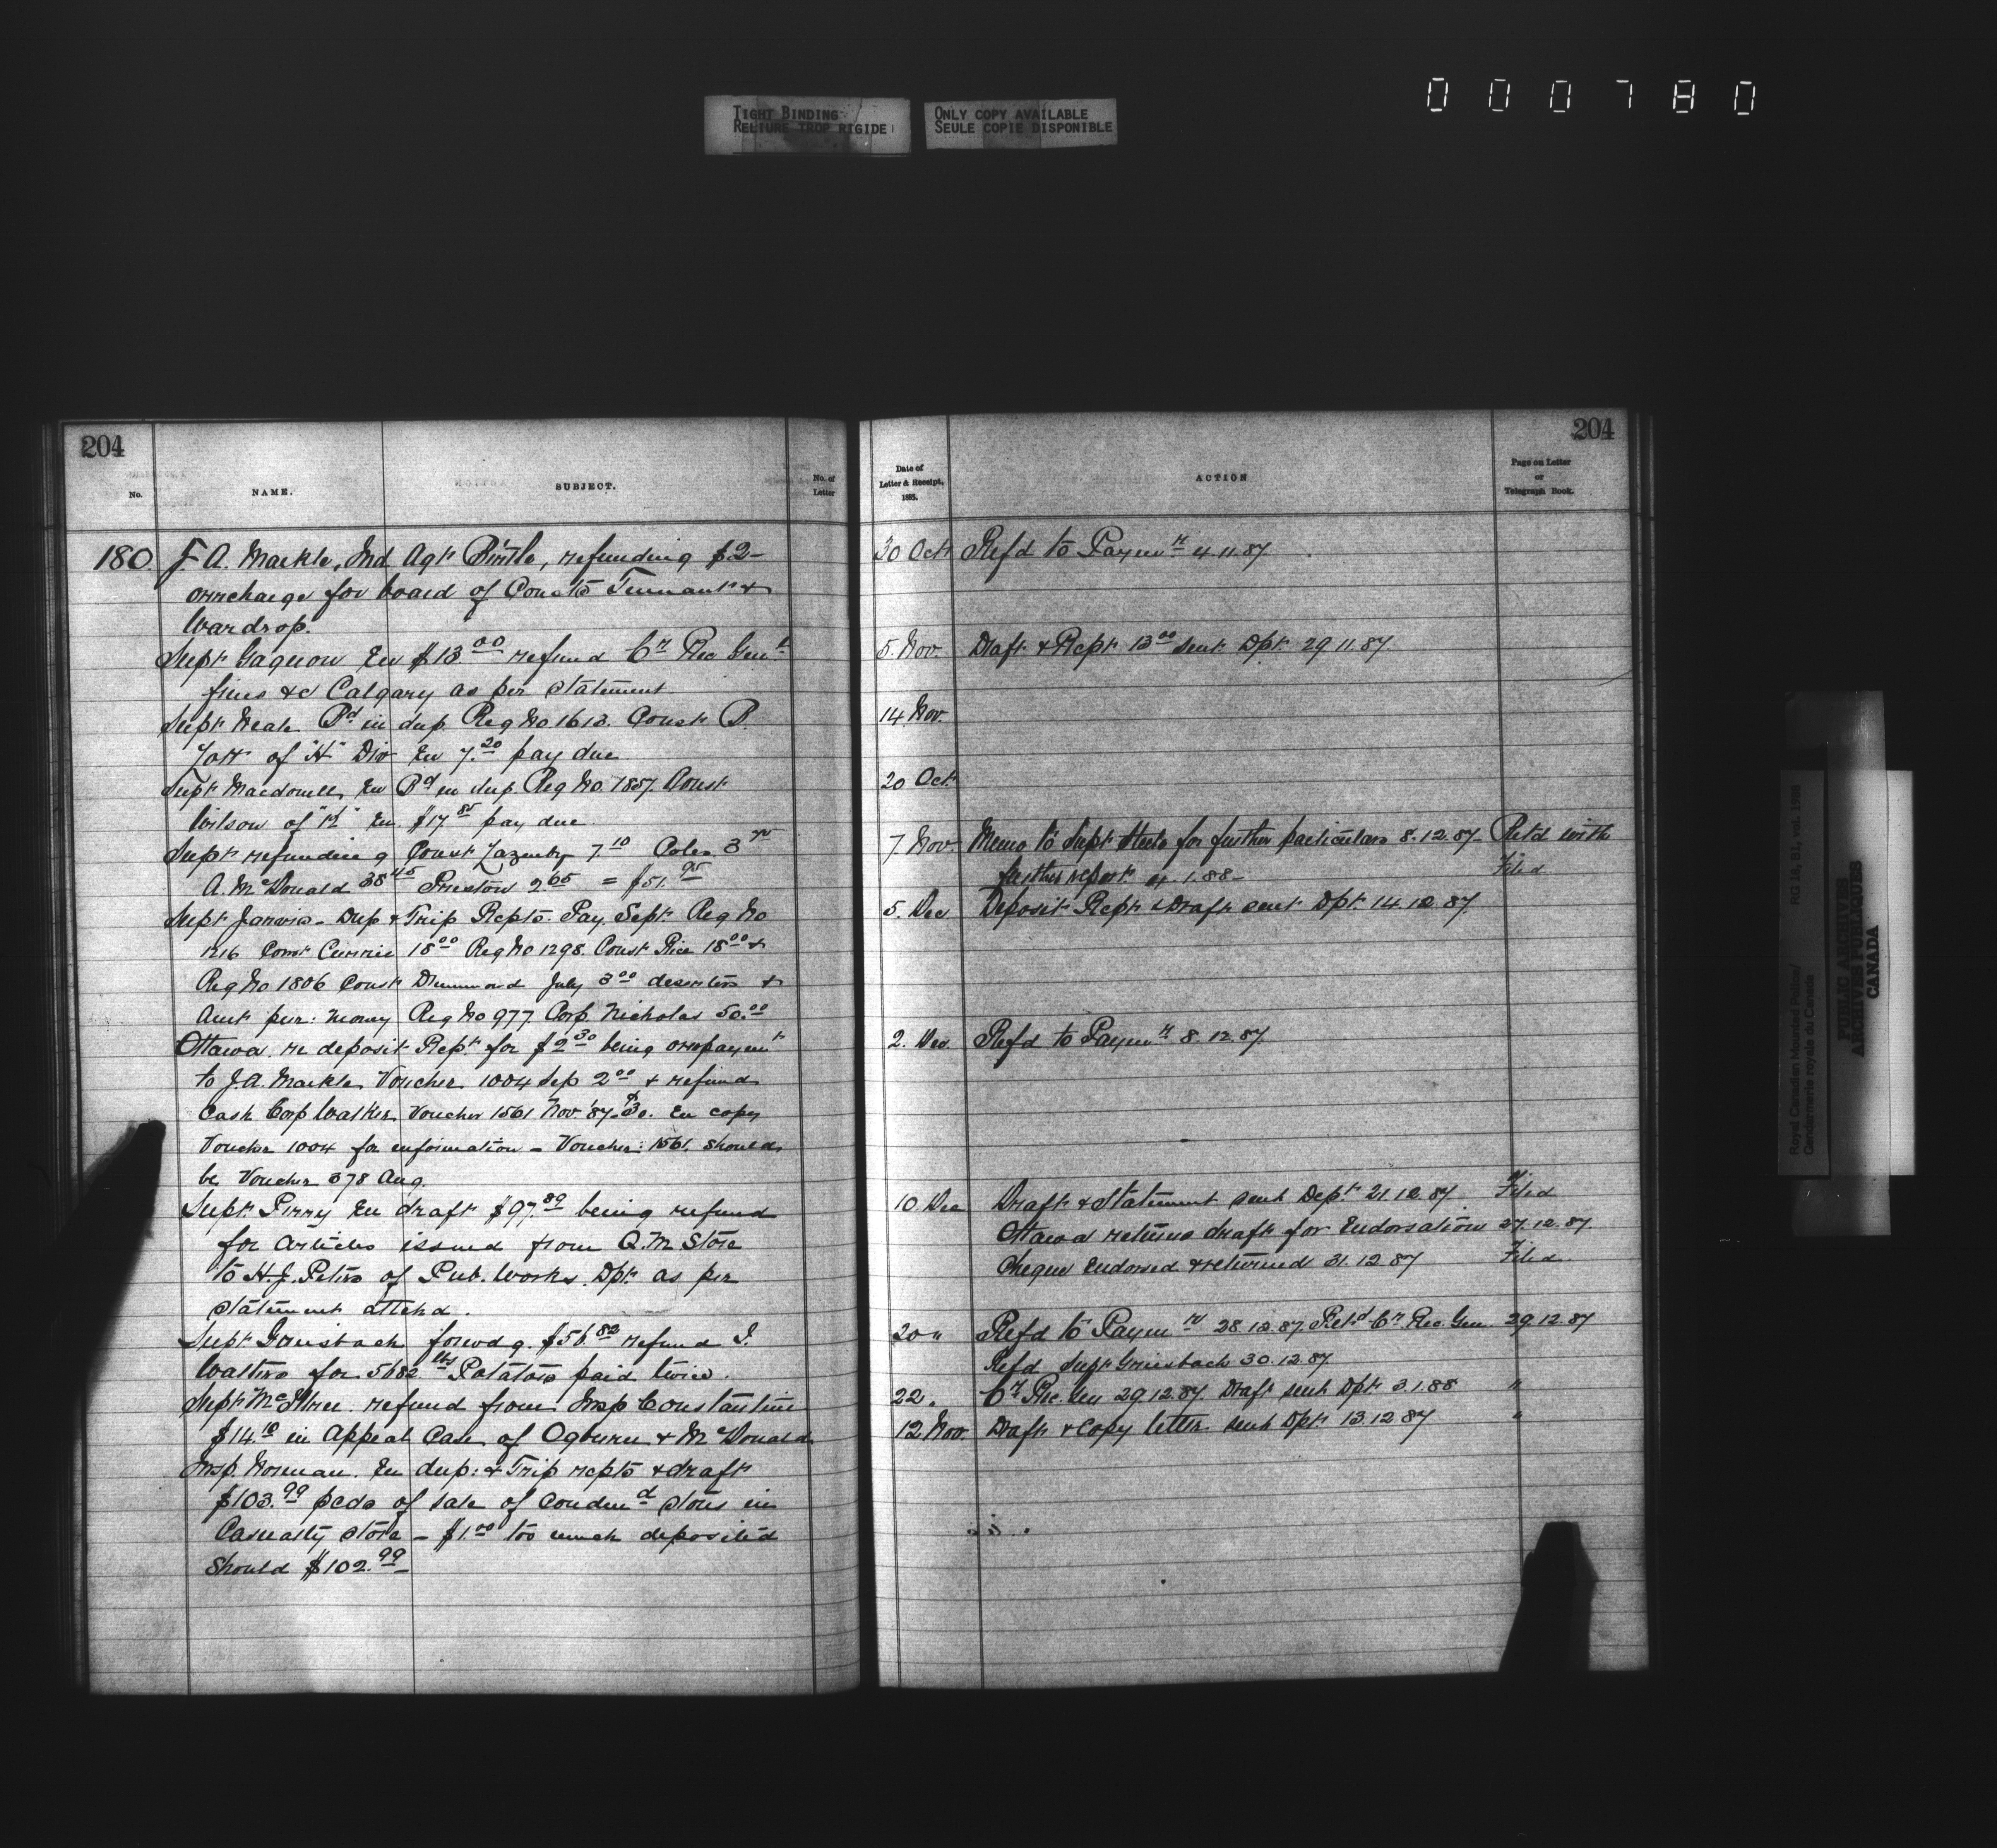 000780
TIGHT BINDING
RELIURE TROP RIGIDE
ONLY COPY AVAILABLE
SEULE COPIE DISPONIBLE
204
No.
NAME.
SUBJECT.
No. of Letter
180. J A. Markle, Ind Agt Birtle, refunding $2-
overcharge for board of Consts Tennant &
Wardrop.
Supt Gagnon En $13.00 refund Cr Rec Genl
fines &c Calgary as per statement
Supt Neale Rd in dup. Reg No 1613. Const P.
of "H" Div En 7.20 pay due
Supt Macdonell En Rd in dup. Reg No. 1857. Const
Wilson of "K" En. $17 85 pay due
Supt refunding Const Lazenby 7.10 Coles 3
A. McDonald 38 45 Preston 2 65 = $51. 95
Supt Jarvis - Dup & Trip Repts. Pay Sept Reg No
1216 Const Currie 18 00 Reg No 1298. Const Price 18 00 &
Reg No 1806 Const Drummond July 3 00 deserters &
Amt pur: money Reg No 977 Corp. Nicholas 50.00
Ottawa. re deposit Rept. for $2 30 being overpaymt
to J.A. Markle Voucher 1004 Sep 2 00 & refund
Cash Corp Walker Voucher 1561 Nov. '87 - 30. En copy
Voucher 1004 for information - Voucher: 1561. should
be Voucher 378 Aug.
Supt Perry En draft $97.89 being refund
for articles issued from Q.M Store
to H.J. Peters of Pub. Works. Dpt. as per
statement attchd.
Supt Griesbach forwdg. $56.82 refund J.
Walters for 5682 lbs Potatoes paid twice.
Supt McIllree. refund from Insp Constantine
$14.10 in Appeal Case of Ogburn & McDonald
Insp. Norman. En dup: & Trip repts & draft
$103.99 pcds of sale of Condemd stores in
Casualty store - $1.00 too much deposited
should $102.99
204
Date of
Letter & Receipt,
1885.
ACTION
Page on Letter
or
Telegraph Book.
30 Oct Refd to Paymr 4.11.87.
5. Nov. Draft & Rept 13 00 sent Dpt. 29 11.87.
14 Nov.
20 Oct.
7 Nov. Memo to Supt Steele for further particulars 8.12.87- Ret'd with
further report 4.1.88- Filed
5. Dec Deposit Rept & Draft sent Dpt 14.12.87.
2. Dec. Refd to Paymr 8.12.87.
10 Dec Draft & Statement sent Dept. 21.12.87 Filed
Ottawa returns draft for Endorsation 27.12.87
Cheque Endorsed & returned 31.12.87 Filed.
20 " Refd to Paymr 28.12.87. Retd Cr Rec. Gen. 29.12.87
Refd Supt Griesbach 30.12.87.
22 " Cr Rec. Gen 29.12.87. Draft sent Dpt 3.1.88 "
12 Nov. Draft & Copy letter sent Dpt. 13.12.87 "
Royal Canadian Mounted Police/
Gendarmerie royale du Canada
RG 18, B1, vol. 1988
PUBLIC ARCHIVES
ARCHIVES PUBLIQUES
CANADA